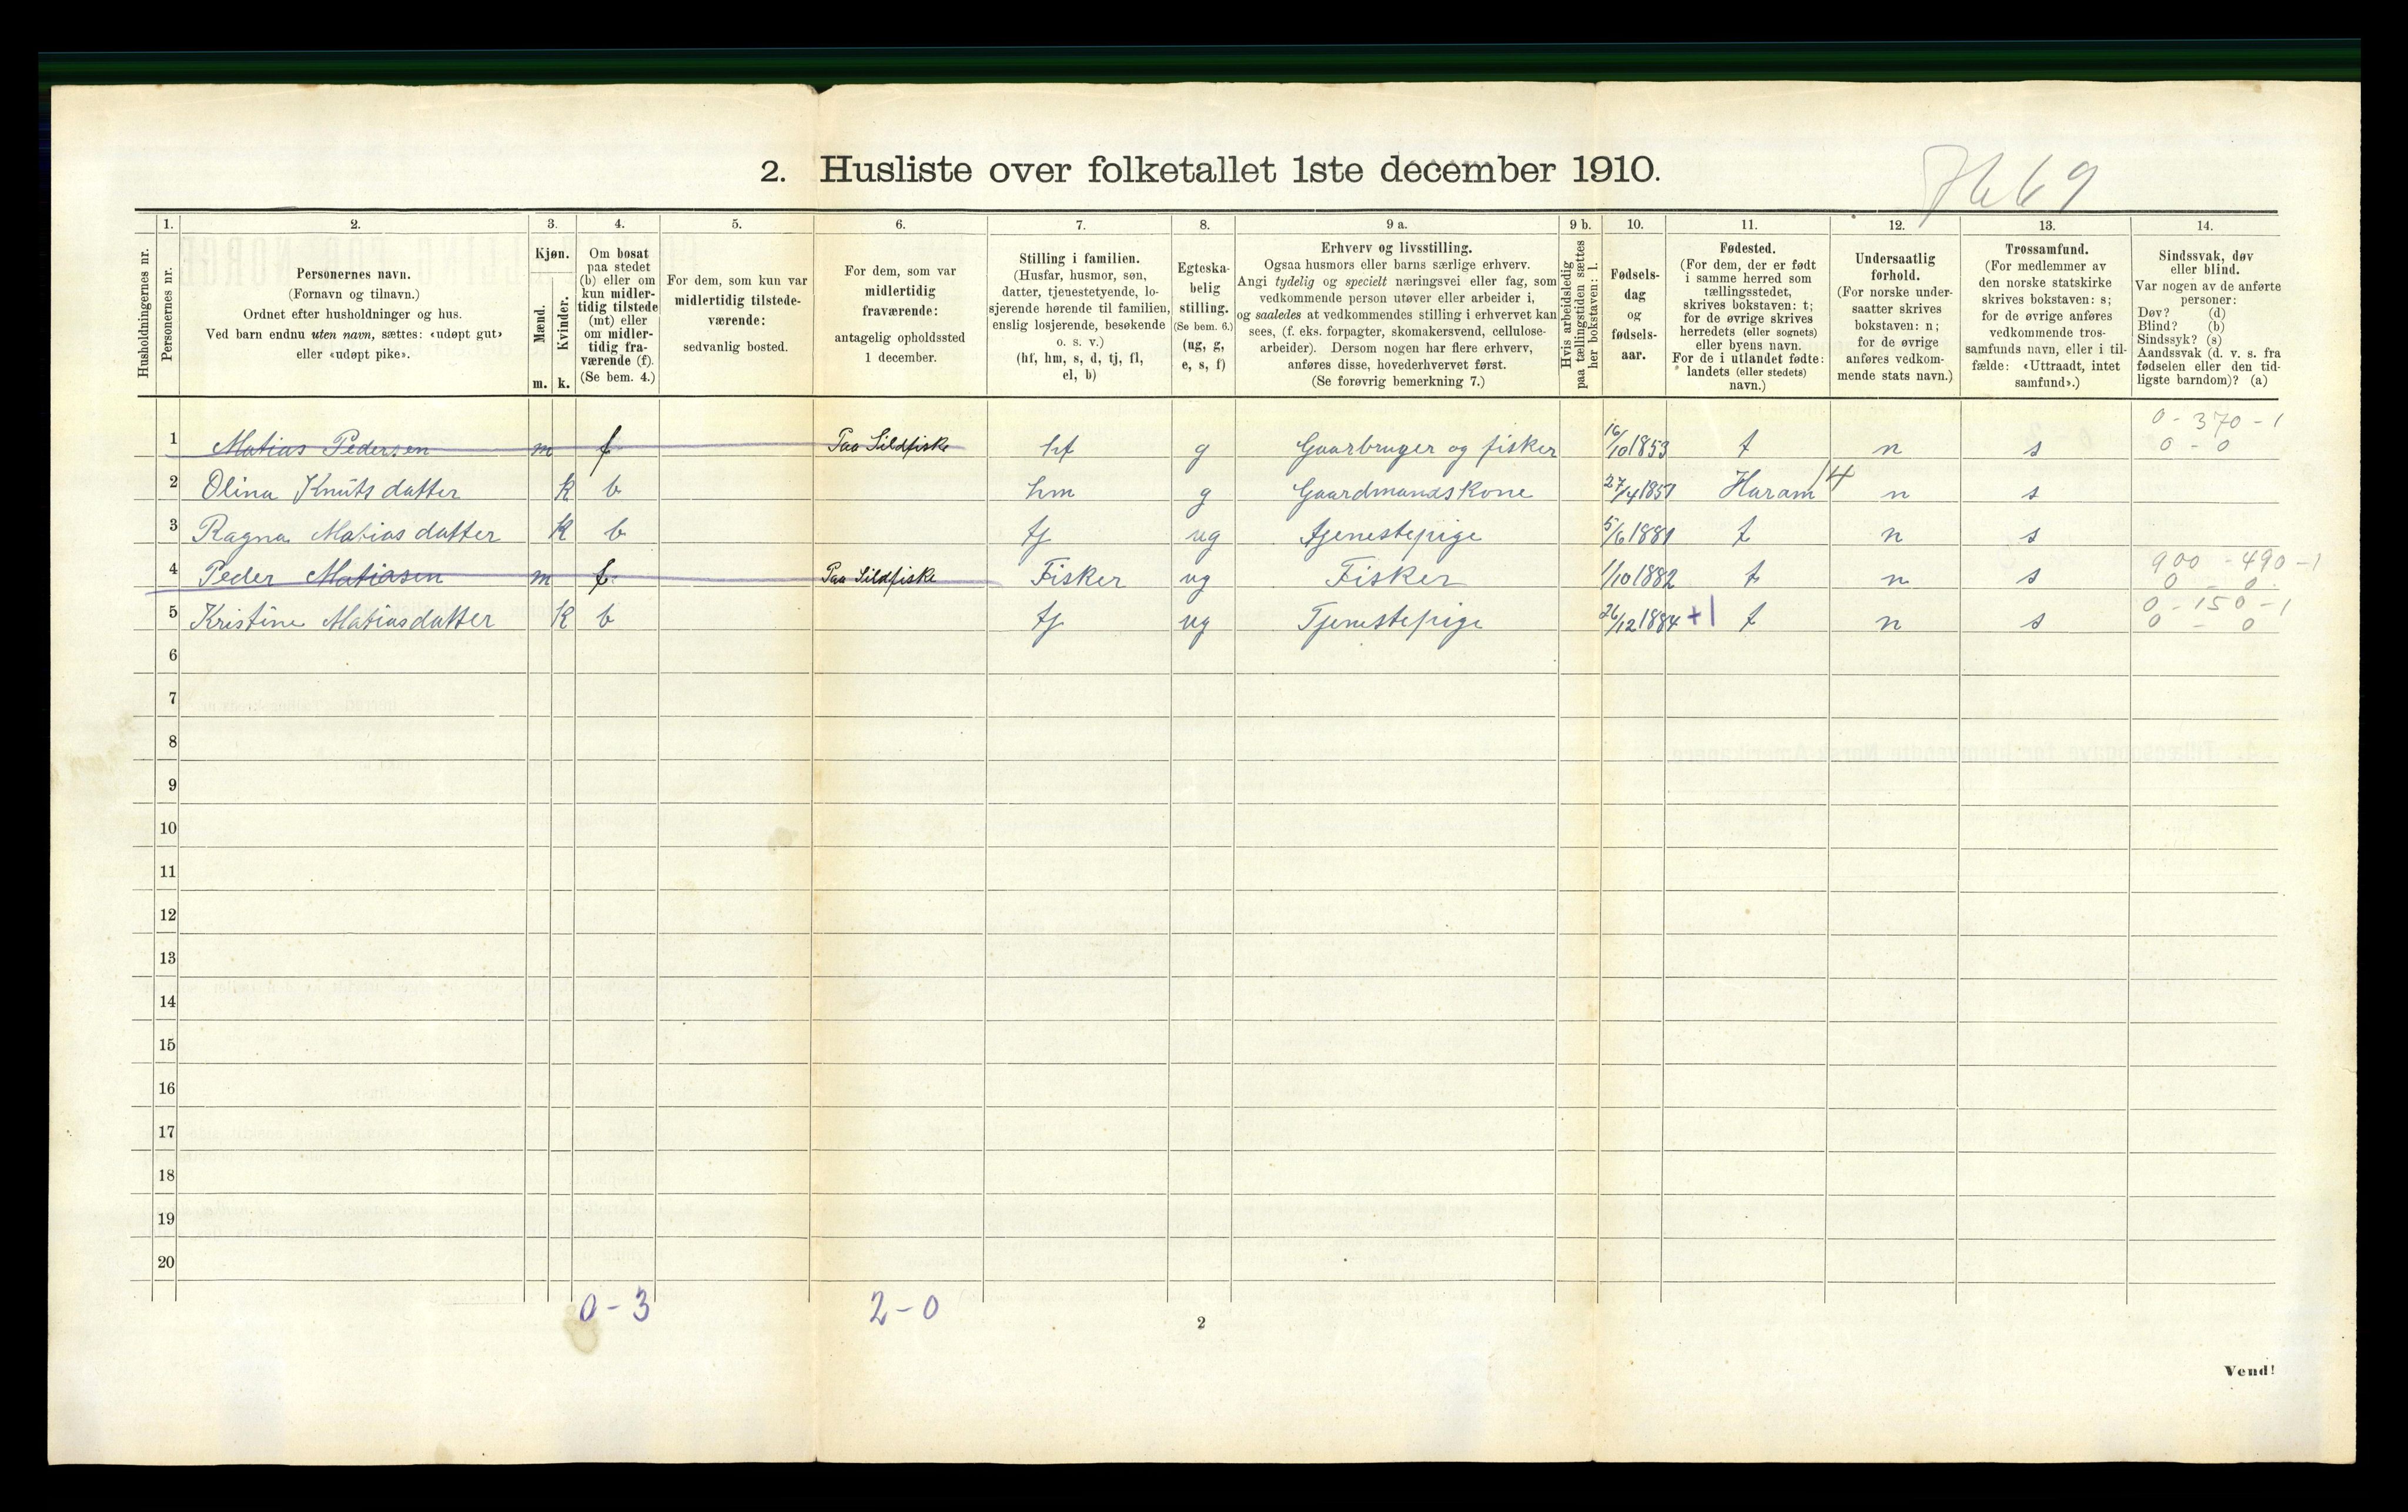 2. Husliste over folketallet 1ste december 1910.
7669
Husholdningernes nr.
1.
Personernes nr.
2.
Personernes navn.
(Fornavn og tilnavn.)
Ordnet efter husholdninger og hus.
Ved barn endnu uten navn, sættes: «udøpt gut»
eller «udøpt pike».
3.
Kjøn.
Mænd.
Kvinder.
m. k.
4.
Om bosat
paa stedet
(b) eller om
kun midler-
tidig tilstede
(mt) eller
om midler-
tidig fra-
værende (f).
(Se bem. 4.)
5.
For dem, som kun var
midlertidig tilstede-
værende:
sedvanlig bosted.
6.
For dem, som var
midlertidig
fraværende:
antagelig opholdssted
1 december.
7.
Stilling i familien.
(Husfar, husmor, søn,
datter, tjenestetyende, lo-
sjerende hørende til familien,
enslig losjerende, besøkende
o. s. v.)
(hf, hm, s, d, tj, fl,
el, b)
8.
Egteska-
belig
stilling.
(Se bem. 6.)
(ug, g,
e, s, f)
9 a.
Erhverv og livsstilling.
Ogsaa husmors eller barns særlige erhverv.
Angi tydelig og specielt næringsvei eller fag, som
vedkommende person utøver eller arbeider i,
og saaledes at vedkommendes stilling i erhvervet kan
sees, (f. eks. forpagter, skomakersvend, cellulose-
arbeider). Dersom nogen har flere erhverv,
anføres disse, hovederhvervet først.
(Se forøvrig bemerkning 7.)
9 b.
Hvis arbeidsledig
paa tællingstiden sættes
her bokstaven: l.
10.
Fødsels-
dag
og
fødsels-
aar.
11.
Fødested.
(For dem, der er født
i samme herred som
tællingsstedet,
skrives bokstaven: t;
for de øvrige skrives
herredets (eller sognets)
eller byens navn.
For de i utlandet fødte:
landets (eller stedets)
navn.)
12.
Undersaatlig
forhold.
(For norske under-
saatter skrives
bokstaven: n;
for de øvrige
anføres vedkom-
mende stats navn.)
13.
Trossamfund.
(For medlemmer av
den norske statskirke
skrives bokstaven: s;
for de øvrige anføres
vedkommende tros-
samfunds navn, eller i til-
fælde: «Uttraadt, intet
samfund».)
14.
Sindssvak, døv
eller blind.
Var nogen av de anførte
personer:
Døv? (d)
Blind? (b)
Sindssyk? (s)
Aandssvak (d. v. s. fra
fødselen eller den tid-
ligste barndom)? (a)
0 - 370 - 1
1 Matias Pedersen m f Paa Sildfiske hf g Gaarbruger og fisker 16/10 1853 t n s 0 - 0
2 Olina Knuts datter k b hm g Gaardmandskone 27/4 1851 Haram 14 n s
3 Ragna Matias datter k b tj ug tjenestepige 5/6 1881 t n s
900 - 490 - 1
4 Peder Matiasen m f Paa Sildfiske Fisker ug Fisker 1/10 1882 t n s 0 - 0
0 - 150 - 1
5 Kristine Matiasdatter k b tj ug Tjenestepige 26/12 1884 +1 t n s 0 - 0
6
7
8
9
10
11
12
13
14
15
16
17
18
19
20
0 - 3 2 - 0
2
Vend!